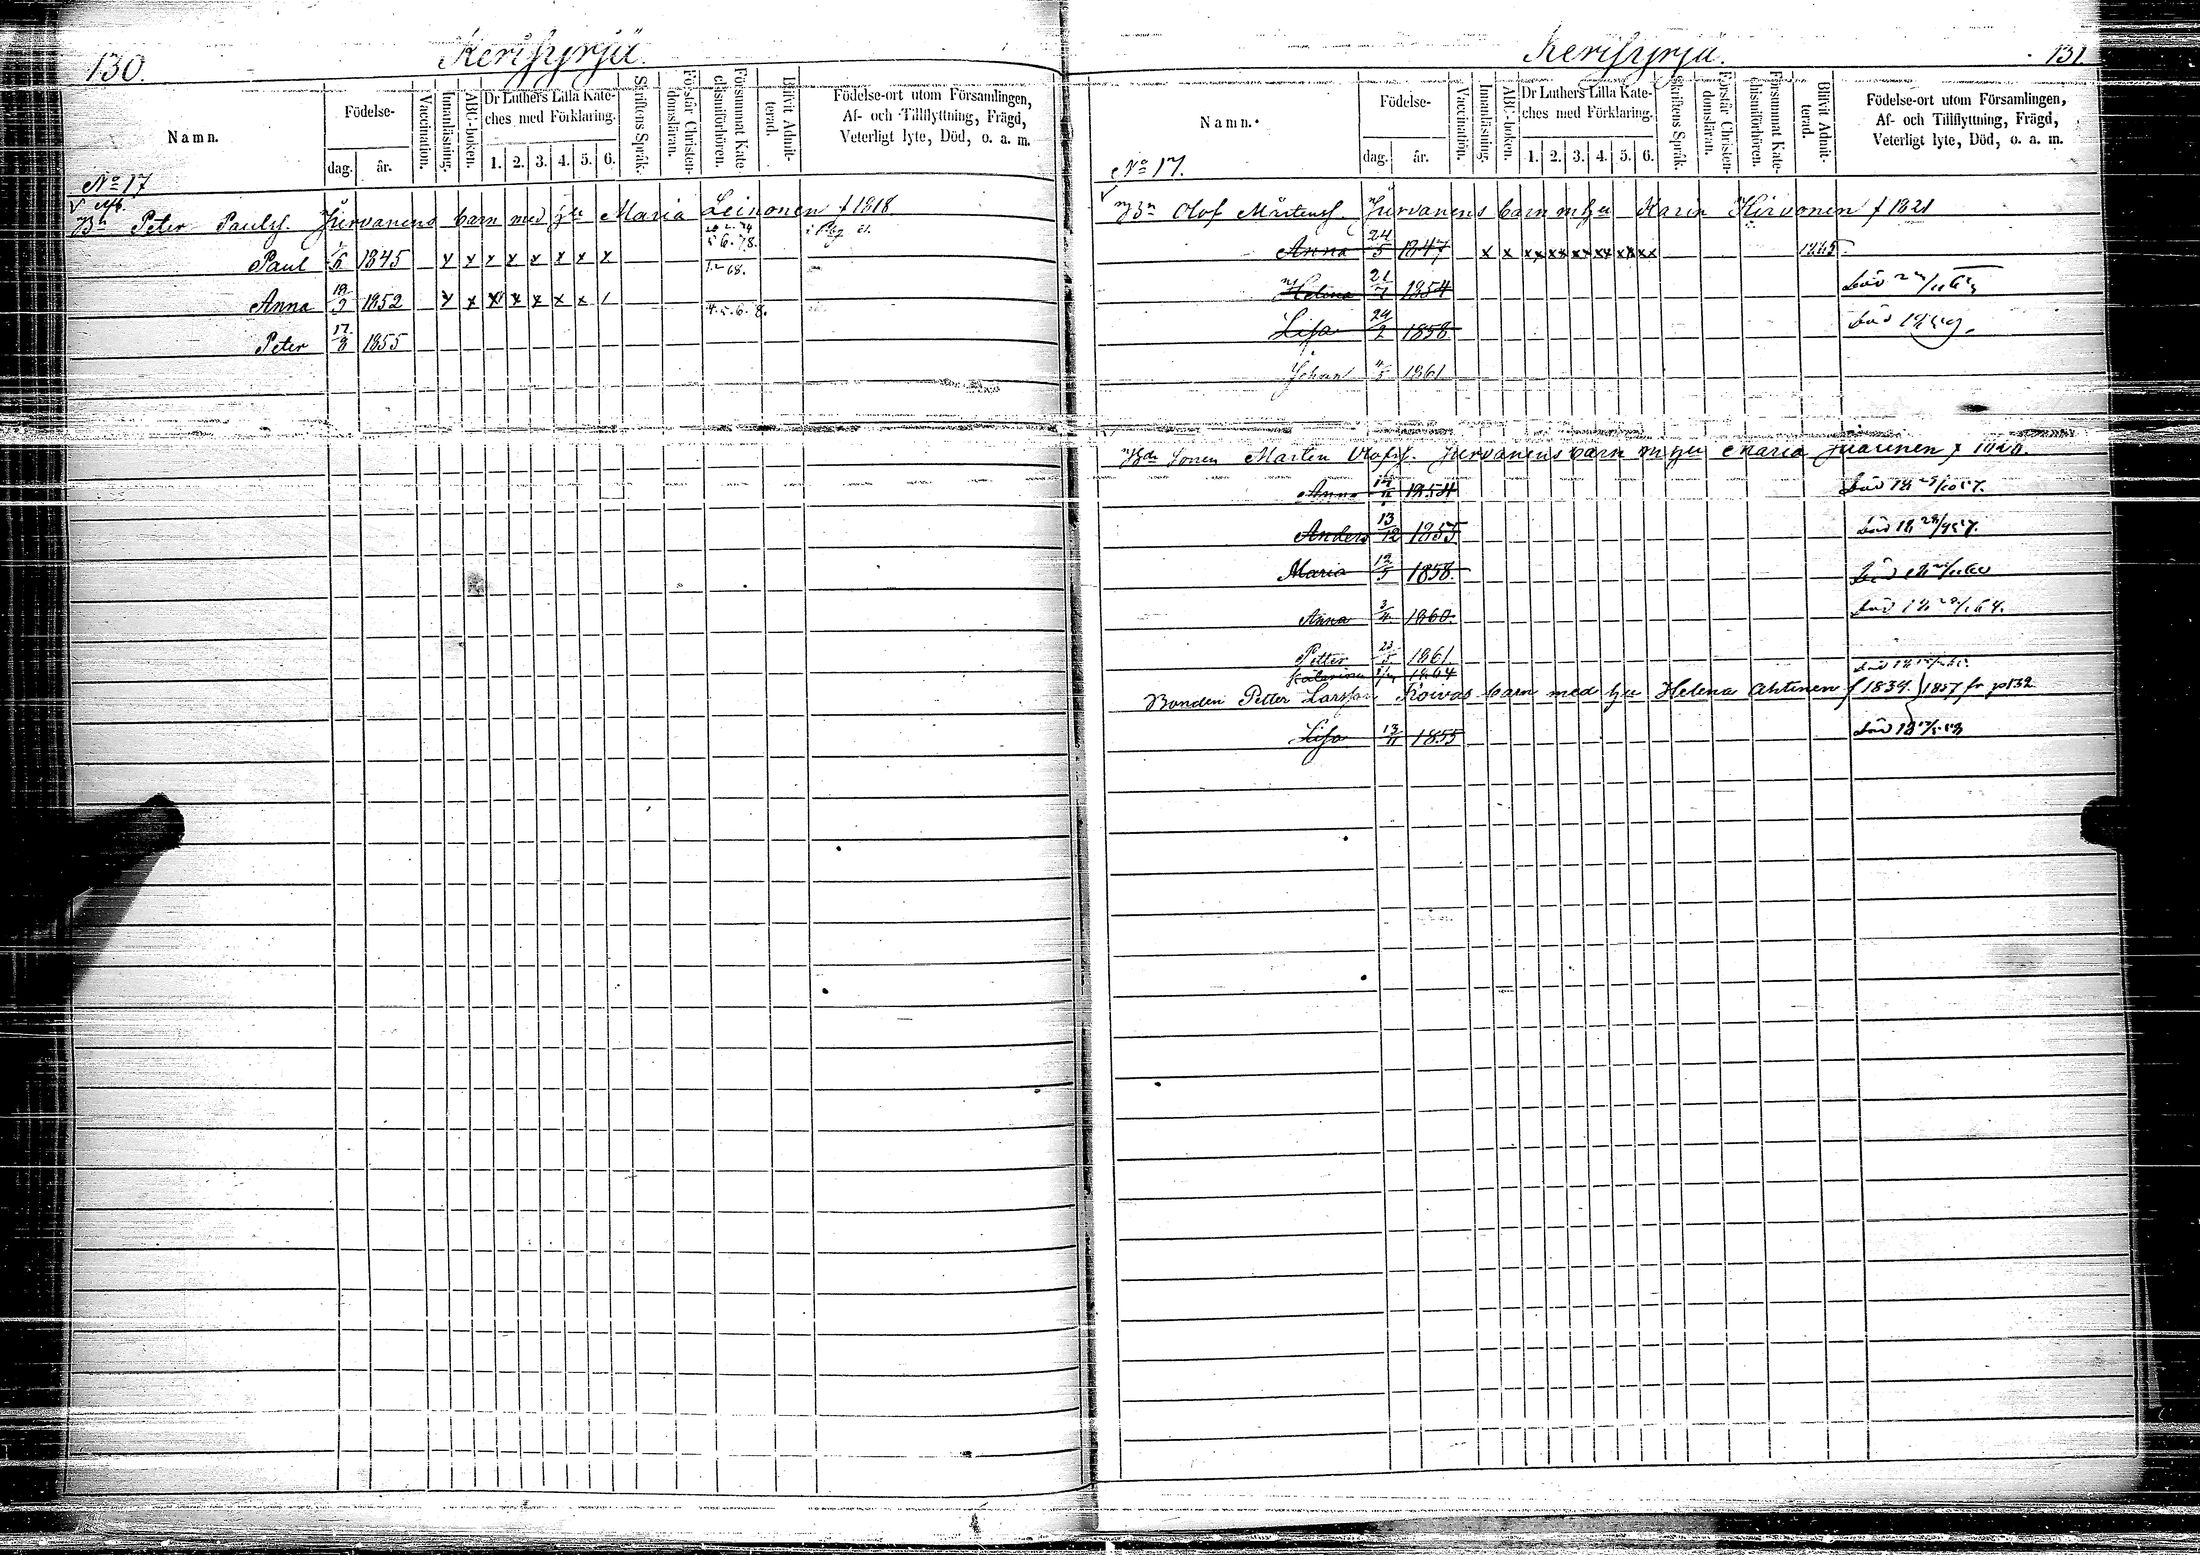 130. Kerisyrjä.
Namn. Födelse- dag. år. Vaccination. Innanläsning. ABC-boken. Dr Luthers Lilla Kateches med Förklaring. 1. 2. 3. 4. 5. 6. Skriftens Språk. Förstår Christendomsläran. Försummat Katechismiförhören. Blifvit Admitterad. Födelse-ort utom Församlingen, Af- och Tillflyttning, Frägd, Veterligt lyte, Död, o. a. m.
No 17
Peter Paulss. Jurvanens barn med hu Maria Leinonen f 1818
Paul 1845 x x x x x x x x 5.6.7.8.
Anna 1852 x x x x x x x / 4.5.6.8.
Peter 17/8 1855
Kerisyrjä. 131
Namn. Födelse- dag. år. Vaccination. Innanläsning. ABC-boken. Dr Luthers Lilla Kateches med Förklaring. 1. 2. 3. 4. 5. 6. Skriftens Språk. Förstår Christendomsläran. Försummat Katechismiförhören. Blifvit Admitterad. Födelse-ort utom Församlingen, Af- och Tillflyttning, Frägd, Veterligt lyte, Död, o. a. m.
No 17.
Bn Olof Mårtenss. Jurvanens barn m hu Karin Hirvonen f 1821
Anna 24/5 1847 x x xx xx xx xx xx xx 1865.
Helena 21/7 1854 död
Lisa 24/2 1858 död
Johan 1861
Sonen Mårten Olofss. Jurvanens barn m hu Maria
Anna 1854 död
Anders 13/12 1855 död
Maria 12/5 1858. död
Anna 3/4 1860. död
Petter 1861
Katarina 1864 död
Bonden Petter Larsson Koivas barn med hu Helena Ahtinen f 1839. 1857 fr p 132
Lisa 13/11 1855 död